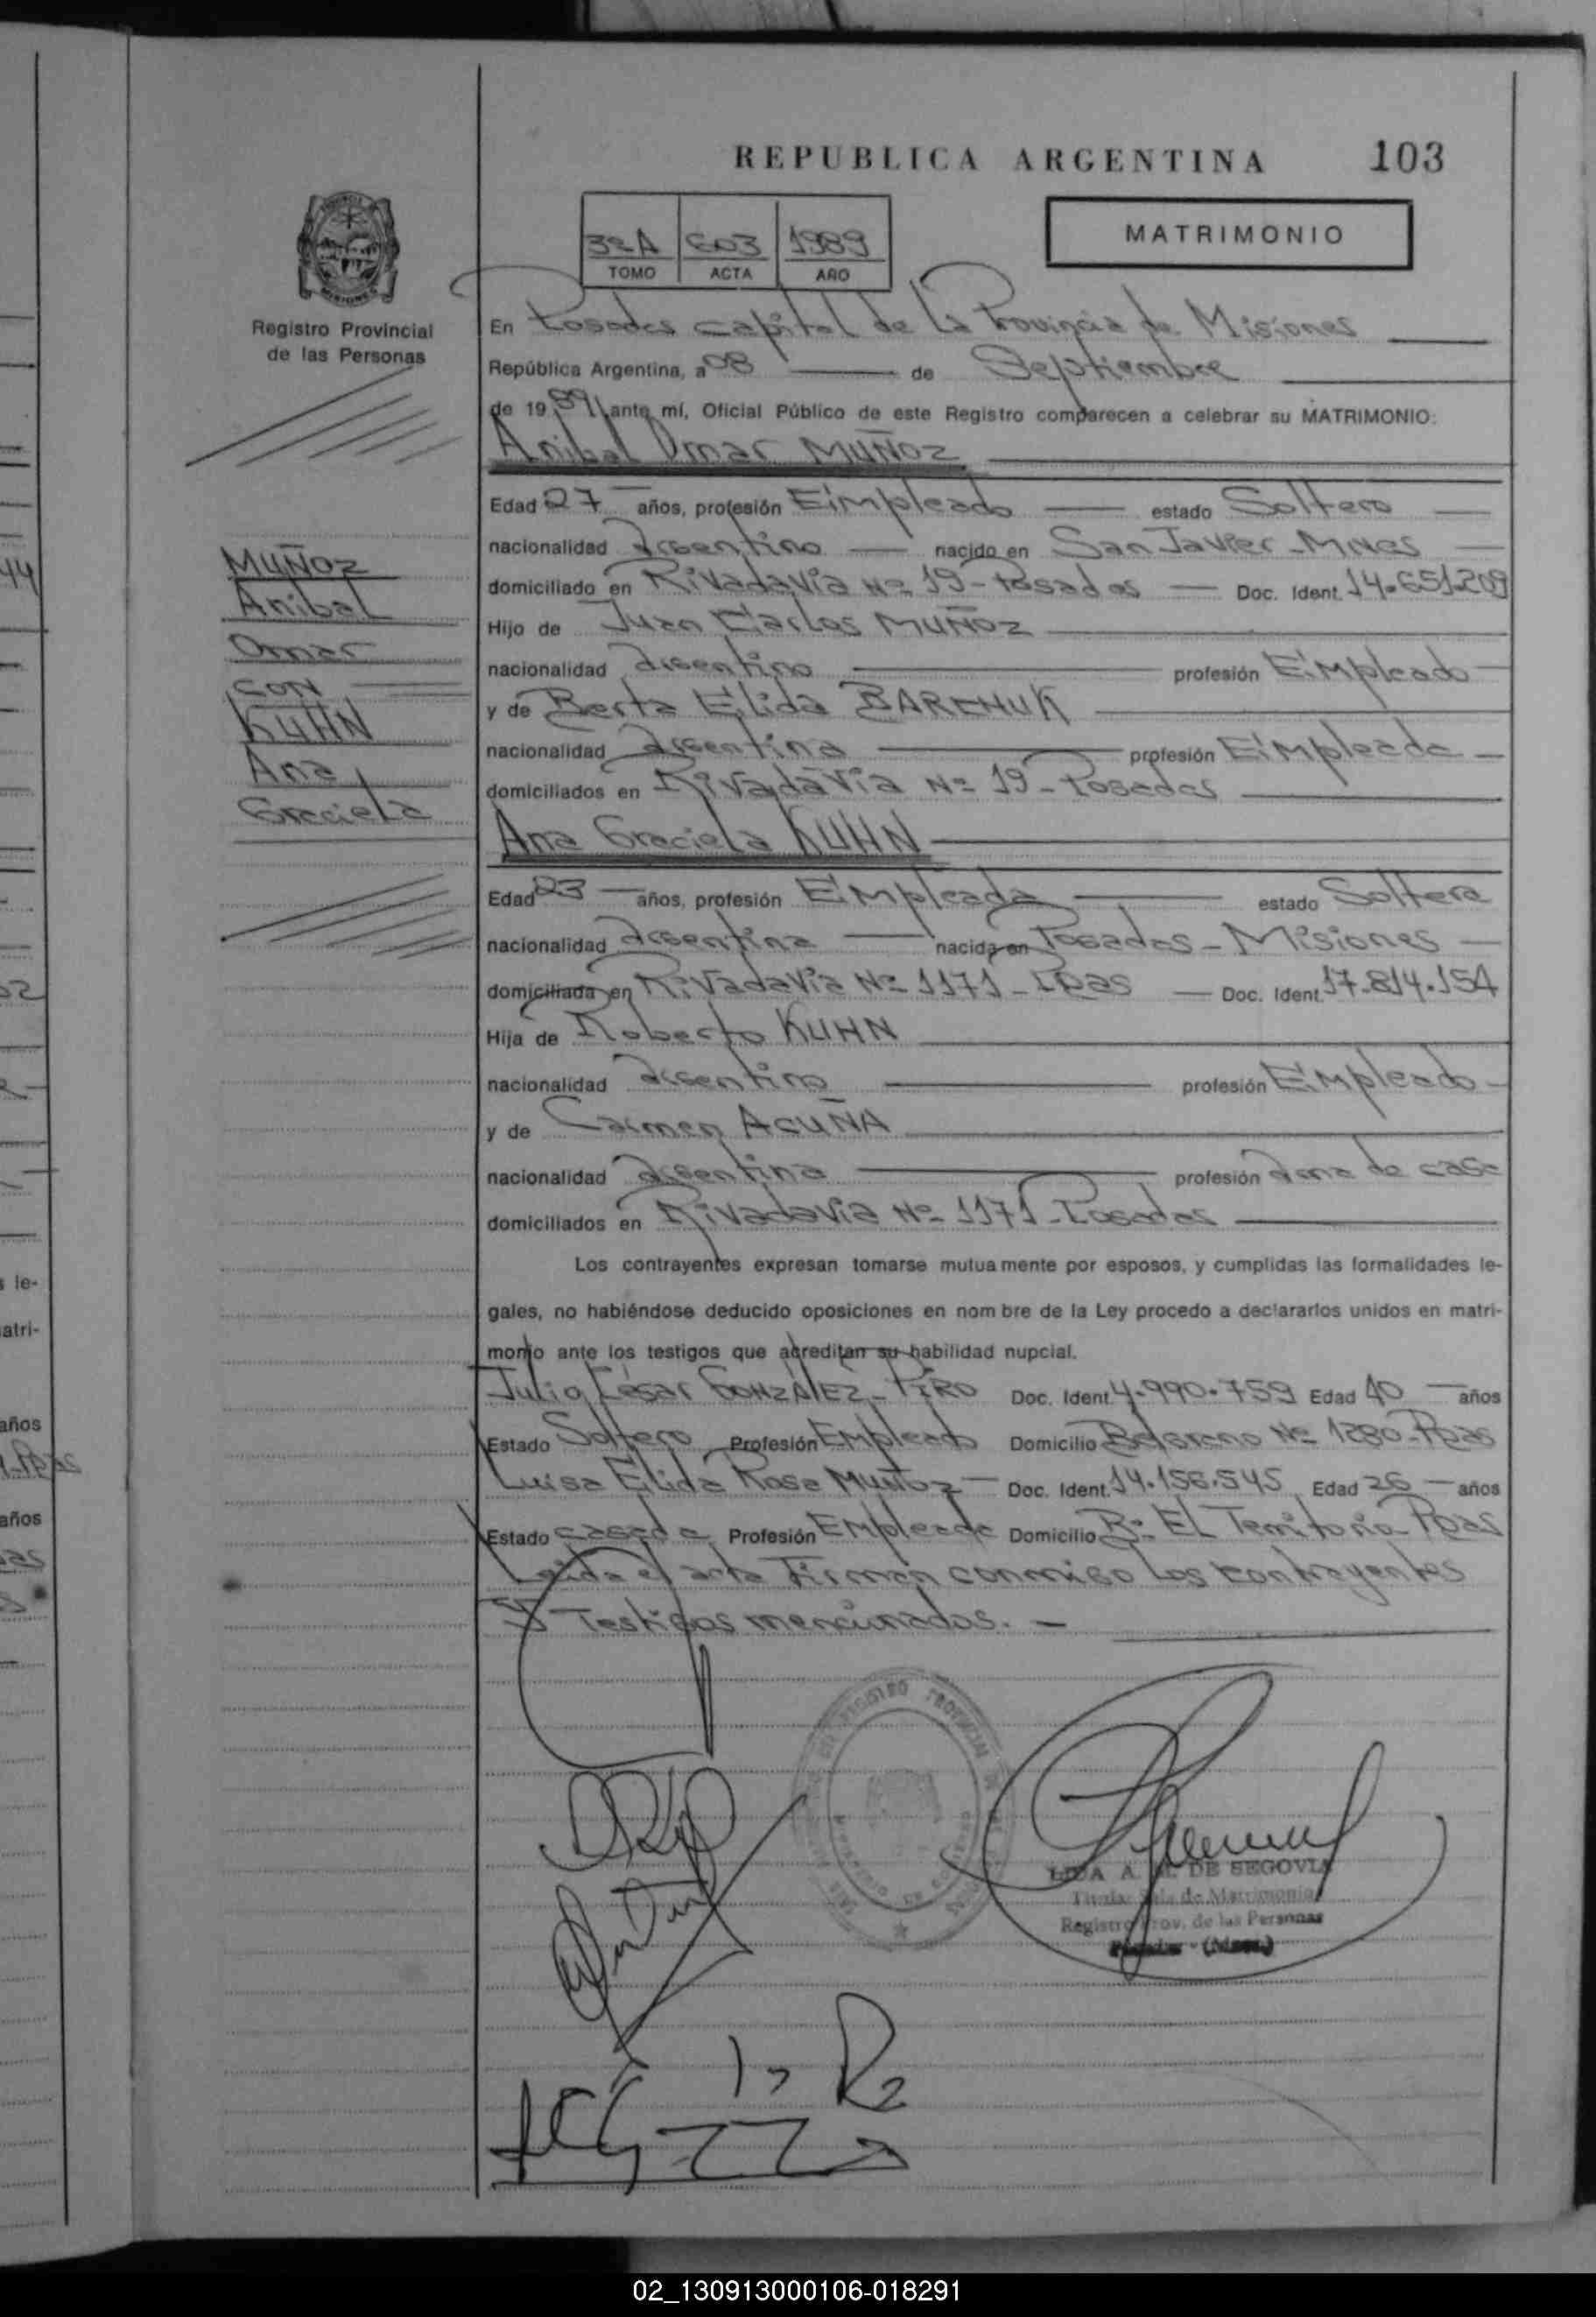 REPUBLICA ARGENTINA 103
3º A 603 1989
TOMO ACTA AÑO
MATRIMONIO
Registro Provincial
de las Personas
MUÑOZ
Anibal
Omar
CON
KUHN
Ana
Graciela
En Posadas capital de la Provincia de Misiones
República Argentina, a 08 de Septiembre
de 1989 ante mí, Oficial Público de este Registro comparecen a celebrar su MATRIMONIO:
Anibal Omar MUÑOZ
Edad 27 años, profesión Empleado estado Soltero
nacionalidad argentino nacido en San Javier - Mnes
domiciliado en Rivadavia Nº 19 - Posadas Doc. Ident. 14.651.209
Hijo de Juan Carlos MUÑOZ
nacionalidad argentino profesión Empleado
y de Berta Elida BARCHUK
nacionalidad argentina profesión Empleada
domiciliados en Rivadavia Nº 19 - Posadas
Ana Graciela KUHN
Edad 23 años, profesión Empleada estado Soltera
nacionalidad argentina nacida en Posadas - Misiones
domiciliada en Rivadavia Nº 1171 - Pdas Doc. Ident. 17.814.154
Hija de Roberto KUHN
nacionalidad argentino profesión Empleado
y de Carmen ACUÑA
nacionalidad argentina profesión ama de casa
domiciliados en Rivadavia Nº 1171 - Posadas
Los contrayentes expresan tomarse mutuamente por esposos, y cumplidas las formalidades le-
gales, no habiéndose deducido oposiciones en nom bre de la Ley procedo a declararlos unidos en matri-
monio ante los testigos que acreditan su habilidad nupcial.
Julio César GONZÁLEZ - PIRO Doc. Ident. 4.990.759 Edad 40 años
Estado Soltero Profesión Empleado Domicilio Belgrano Nº 1280 - Pdas
Luisa Elida Rosa MUÑOZ Doc. Ident. 14.156.545 Edad 26 años
Estado casada Profesión Empleada Domicilio Bº El Territorio Pdas
Leida el acta Firman conmigo los contrayentes
y Testigos mencionados. -
LIDA A. M. DE SEGOVIA
Titular Sala de Matrimonio
Registro Prov. de las Personas
Posadas - (Mnes.)
02_130913000106-018291